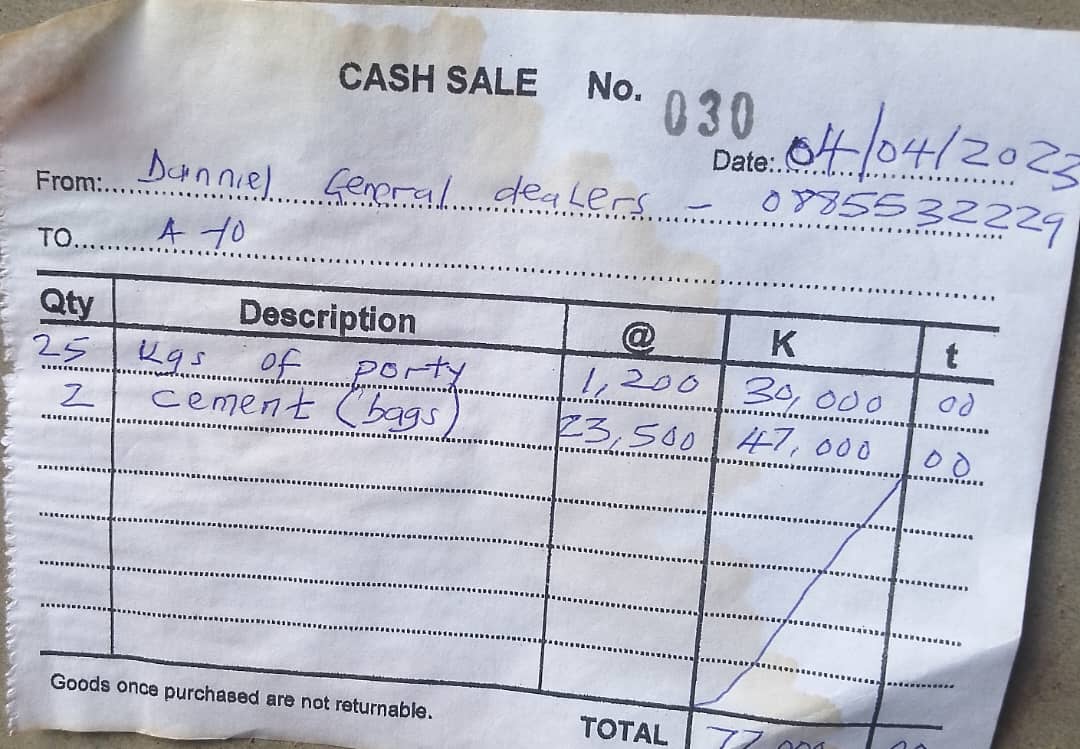 CASH SALE No. 030
Date: 04/04/2023
From: Danniel General dealers - 0885532229
TO A 10
Qty Description @ K t
25 Kgs of porty 1,200 30,000 00
2 cement (bags) 23,500 47,000 00
Goods once purchased are not returnable.
TOTAL 77,000 00